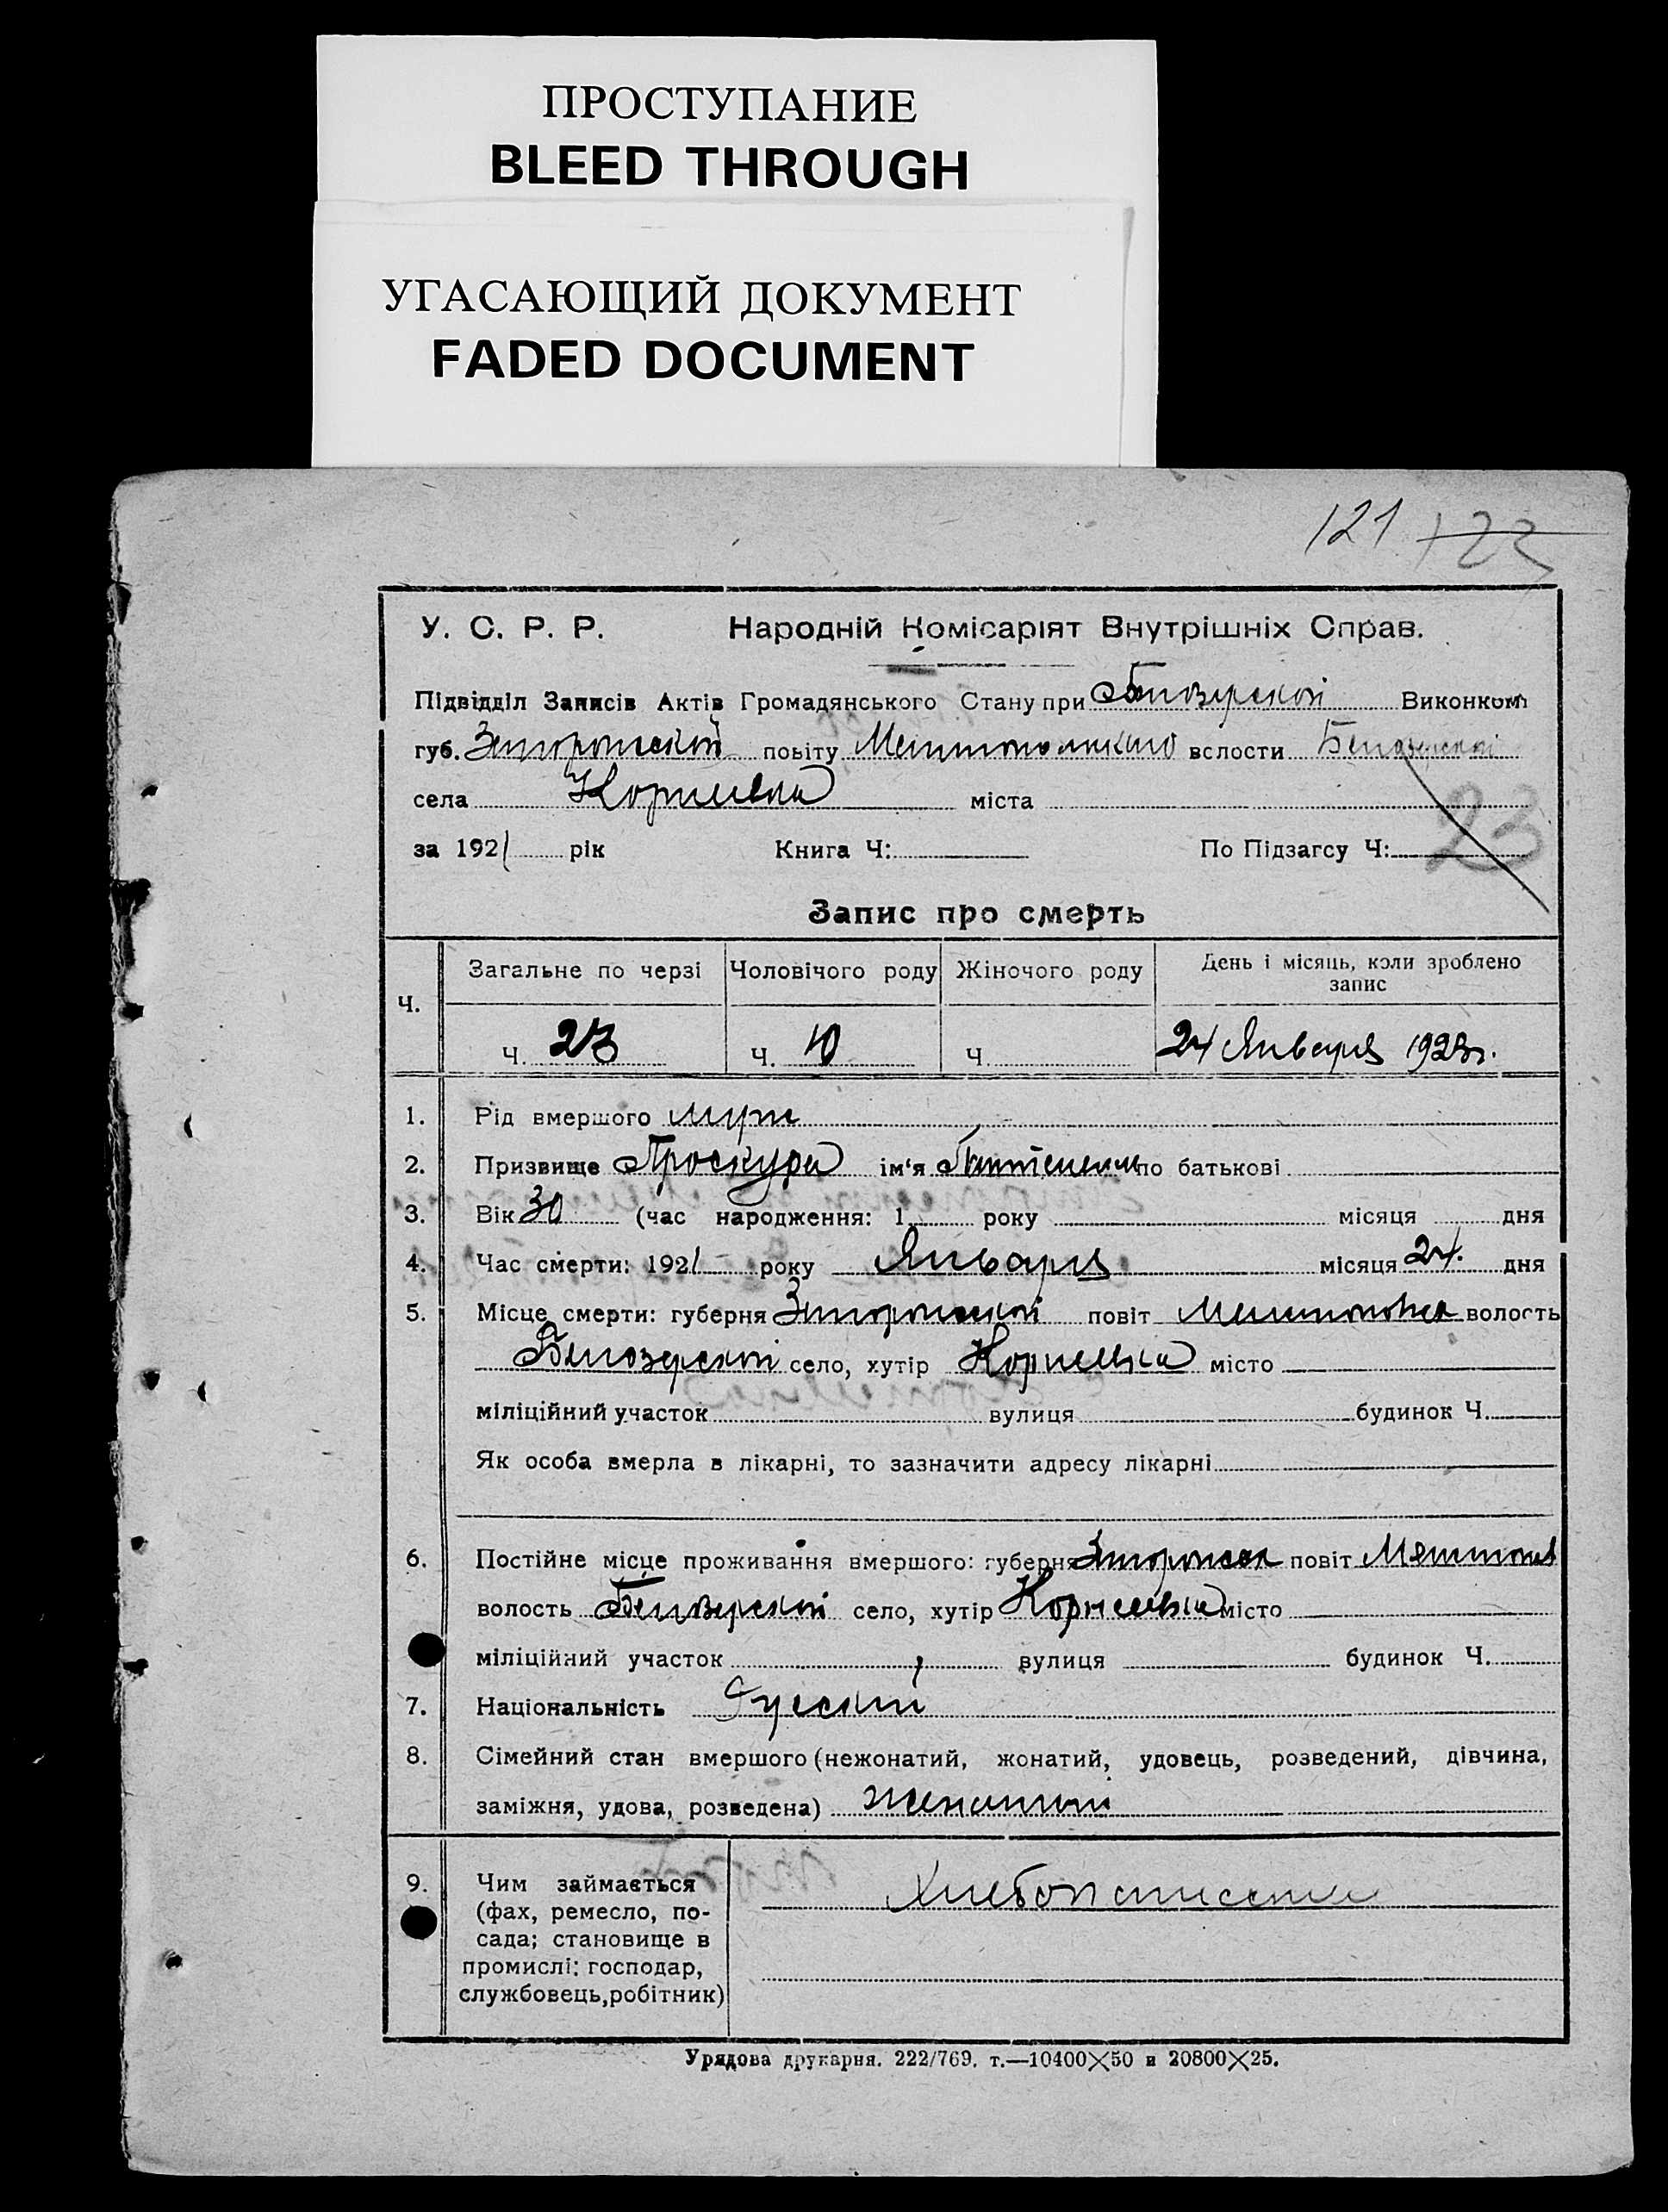 ПРОСТУПАНИЕ
BLEED THROUGH
УГАСАЮЩИЙ ДОКУМЕНТ
FADED DOCUMENT
121 123
У. С. Р. Р. Народній Комісаріят Внутрішніх Справ.
Підвідділ Записів Актів Громадянського Стану при Белозерской Виконком
губ. Запорожской повіту Мелитопольского вслости Белозерской
села Корнеевка міста
за 1921 рік Книга Ч: По Підзагсу Ч: 23
Запис про смерть
Ч. Загальне по черзі Чоловічого роду Жіночого роду День і місяць, коли зроблено
запис
Ч. 23 Ч. 10 Ч. 24 Января 1923г.
1. Рід вмершого муж
2. Призвище Проскура ім'я по батькові
3. Вік 30 (час народження: 1 року місяця дня
4. Час смерти: 1921 року Января місяця 24. дня
5. Місце смерти: губерня Запорожской повіт волость
Белозерской село, хутір Корнеевка місто
міліційний участок вулиця будинок Ч.
Як особа вмерла в лікарні, то зазначити адресу лікарні
6. Постійне місце проживання вмершого: губерня повіт
волость Белозерской село, хутір Корнеевка місто
міліційний участок вулиця будинок Ч.
7. Національність Русский
8. Сімейний стан вмершого (нежонатий, жонатий, удовець, розведений, дівчина,
заміжня, удова, розведена) женатый
9. Чим займається Хлебопашество
(фах, ремесло, по-
сада; становище в
промислі: господар,
службовець,робітник)
Урядова друкарня. 222/769. т.—10400×50 и 20800×25.